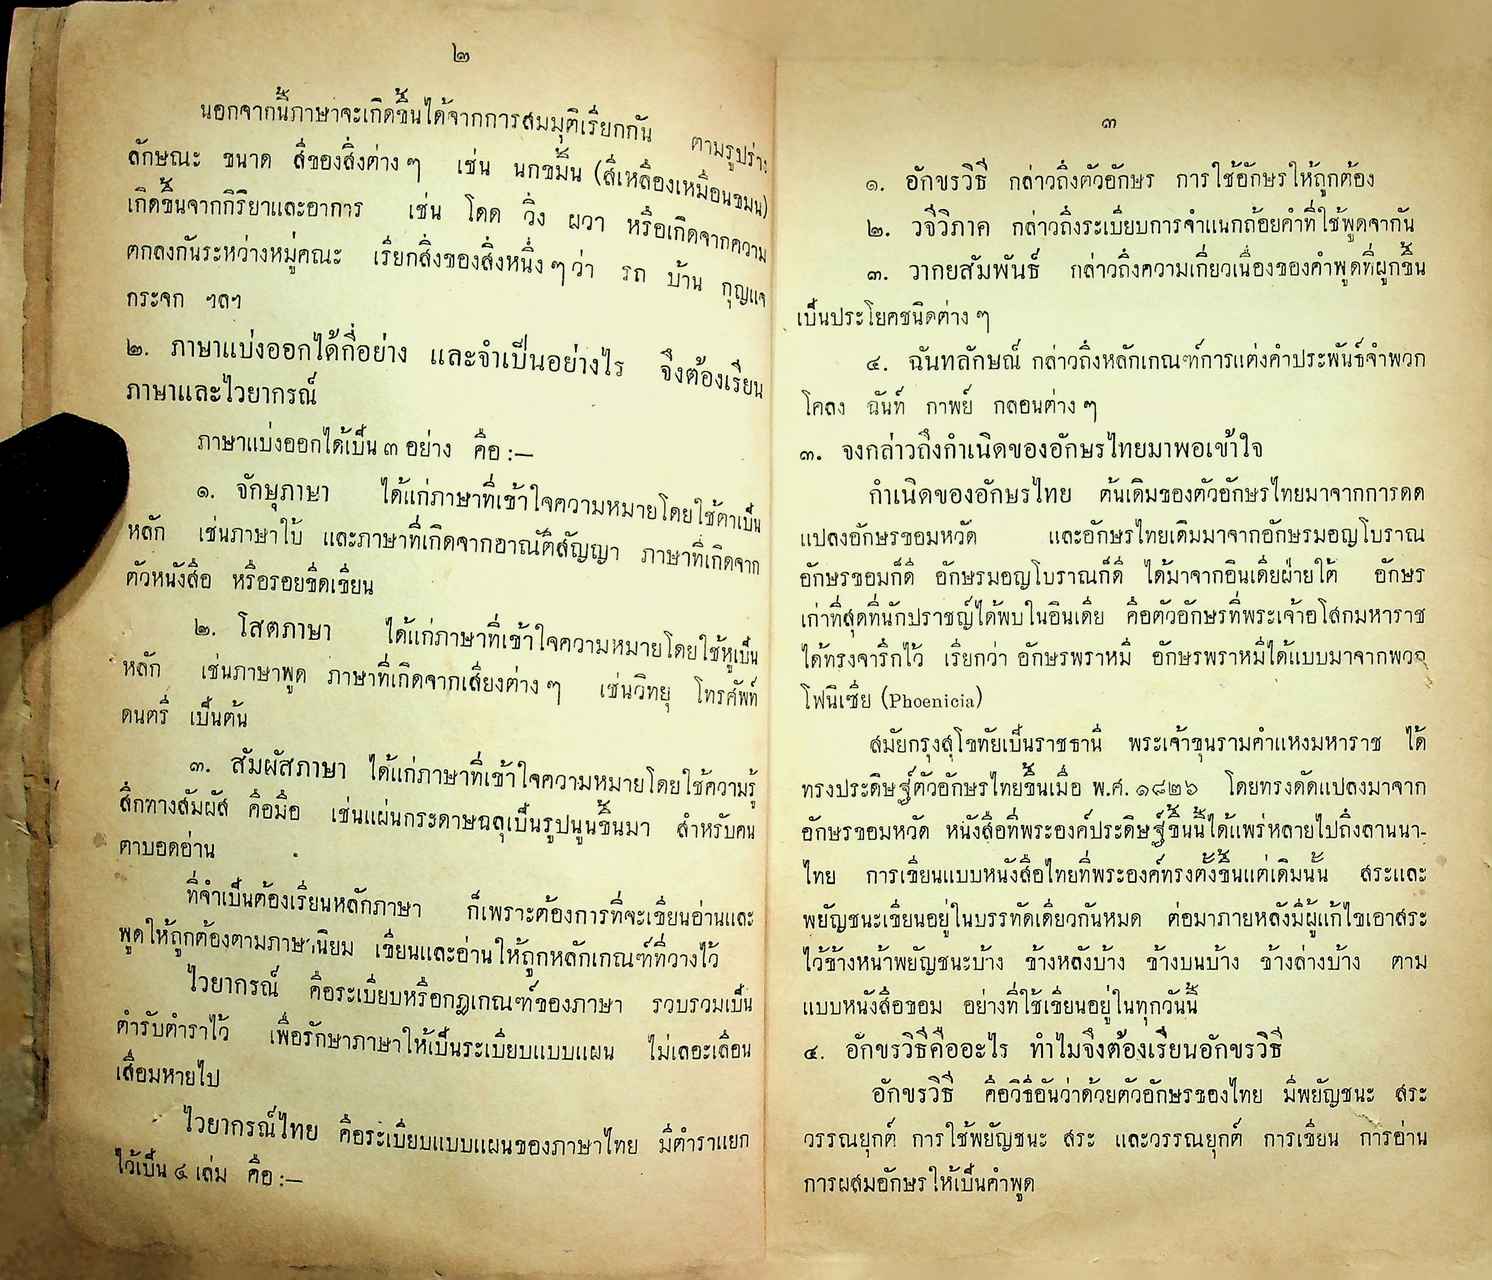 ๒
นอกจากนี้ภาษาจะเกิดขึ้นได้จากการสมมุติเรียกกัน ตามรูปร่าง
ลักษณะ ขนาด สีของสิ่งต่าง ๆ เช่น นกขมิ้น (สีเหลืองเหมือนขมิ้น)
เกิดขึ้นจากกิริยาและอาการ เช่น โดด วิ่ง ผวา หรือเกิดจากความ
ตกลงกันระหว่างหมู่คณะ เรียกสิ่งของสิ่งหนึ่ง ๆ ว่า รถ บ้าน กุญแจ
กระจก ฯลฯ
๒. ภาษาแบ่งออกได้กี่อย่าง และจำเป็นอย่างไร จึงต้องเรียน
ภาษาและไวยากรณ์
ภาษาแบ่งออกได้เป็น ๓ อย่าง คือ :—
๑. จักษุภาษา ได้แก่ภาษาที่เข้าใจความหมายโดยใช้ตาเป็น
หลัก เช่นภาษาใบ้ และภาษาที่เกิดจากอาณัติสัญญา ภาษาที่เกิดจาก
ตัวหนังสือ หรือรอยขีดเขียน
๒. โสตภาษา ได้แก่ภาษาที่เข้าใจความหมายโดยใช้หูเป็น
หลัก เช่นภาษาพูด ภาษาที่เกิดจากเสียงต่าง ๆ เช่นวิทยุ โทรศัพท์
ดนตรี เป็นต้น
๓. สัมผัสภาษา ได้แก่ภาษาที่เข้าใจความหมายโดยใช้ความรู้
สึกทางสัมผัส คือมือ เช่นแผ่นกระดาษฉลุเป็นรูปนูนขึ้นมา สำหรับคน
ตาบอดอ่าน
ที่จำเป็นต้องเรียนหลักภาษา ก็เพราะต้องการที่จะเขียนอ่านและ
พูดให้ถูกต้องตามภาษานิยม เขียนและอ่านให้ถูกหลักเกณฑ์ที่วางไว้
ไวยากรณ์ คือระเบียบหรือกฎเกณฑ์ของภาษา รวบรวมเป็น
ตำรับตำราไว้ เพื่อรักษาภาษาให้เป็นระเบียบแบบแผน ไม่เลอะเลือน
เสื่อมหายไป
ไวยากรณ์ไทย คือระเบียบแบบแผนของภาษาไทย มีตำราแยก
ไว้เป็น ๔ เล่ม คือ :—
๓
๑. อักขรวิธี กล่าวถึงตัวอักษร การใช้อักษรให้ถูกต้อง
๒. วจีวิภาค กล่าวถึงระเบียบการจำแนกถ้อยคำที่ใช้พูดจากัน
๓. วากยสัมพันธ์ กล่าวถึงความเกี่ยวเนื่องของคำพูดที่ผูกขึ้น
เป็นประโยคชนิดต่าง ๆ
๔. ฉันทลักษณ์ กล่าวถึงหลักเกณฑ์การแต่งคำประพันธ์จำพวก
โคลง ฉันท์ กาพย์ กลอนต่าง ๆ
๓. จงกล่าวถึงกำเนิดของอักษรไทยมาพอเข้าใจ
กำเนิดของอักษรไทย ต้นเดิมของตัวอักษรไทยมาจากการดัด
แปลงอักษรขอมหวัด และอักษรไทยเดิมมาจากอักษรมอญโบราณ
อักษรขอมก็ดี อักษรมอญโบราณก็ดี ได้มาจากอินเดียฝ่ายใต้ อักษร
เก่าที่สุดที่นักปราชญ์ได้พบในอินเดีย คือตัวอักษรที่พระเจ้าอโสกมหาราช
ได้ทรงจารึกไว้ เรียกว่า อักษรพราหมี อักษรพราหมีได้แบบมาจากพวก
โฟนิเซีย (Phoenicia)
สมัยกรุงสุโขทัยเป็นราชธานี พระเจ้าขุนรามคำแหงมหาราช ได้
ทรงประดิษฐ์ตัวอักษรไทยขึ้นเมื่อ พ.ศ. ๑๘๒๖ โดยทรงดัดแปลงมาจาก
อักษรขอมหวัด หนังสือที่พระองค์ประดิษฐ์ขึ้นนี้ได้แพร่หลายไปถึงลานนา-
ไทย การเขียนแบบหนังสือไทยที่พระองค์ทรงตั้งขึ้นแต่เดิมนั้น สระและ
พยัญชนะเขียนอยู่ในบรรทัดเดียวกันหมด ต่อมาภายหลังมีผู้แก้ไขเอาสระ
ไว้ข้างหน้าพยัญชนะบ้าง ข้างหลังบ้าง ข้างบนบ้าง ข้างล่างบ้าง ตาม
แบบหนังสือขอม อย่างที่ใช้เขียนอยู่ในทุกวันนี้
๔. อักขรวิธีคืออะไร ทำไมจึงต้องเรียนอักขรวิธี
อักขรวิธี คือวิธีอันว่าด้วยตัวอักษรของไทย มีพยัญชนะ สระ
วรรณยุกต์ การใช้พยัญชนะ สระ และวรรณยุกต์ การเขียน การอ่าน
การผสมอักษรให้เป็นคำพูด